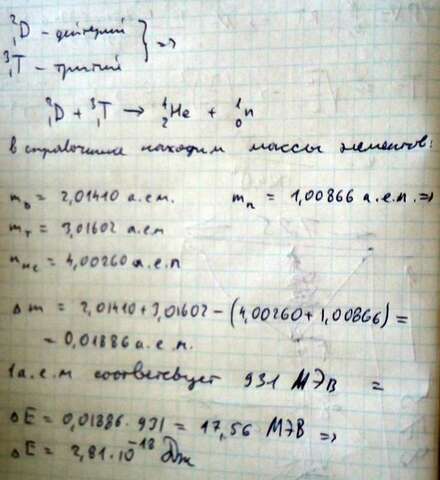 ²₁D – дейтерий } =>
³₁T – тритий
²₁D + ³₁T → ⁴₂He + ¹₀n
в справочнике находим массы элементов:
m_D = 2,01410 а.ем. m_n = 1,00866 а.е.м. =>
m_T = 3,01602 а.ем
m_He = 4,00260 а.е.м
Δm = 2,01410 + 3,01602 – (4,00260 + 1,00866) =
= 0,01886 а.е.м.
1 а.е.м соответствует 931 МЭВ =
ΔE = 0,01886 · 931 = 17,56 МЭВ =>
ΔE = 2,81 · 10⁻¹² Дж